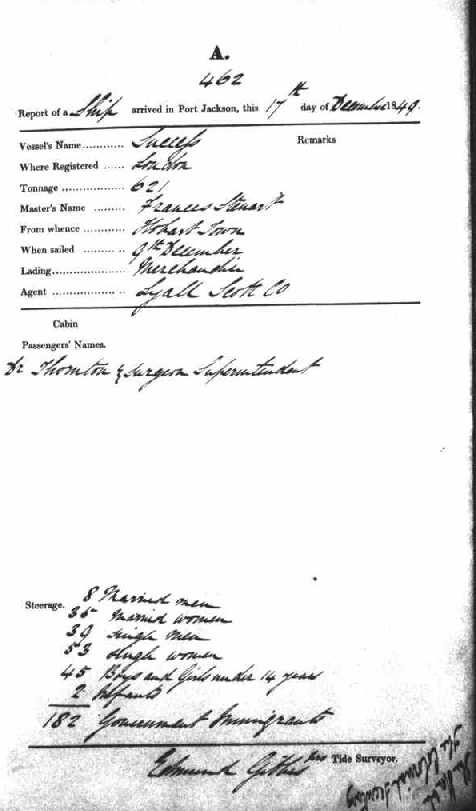 A.
462
Report of a Ship arrived in Port Jackson, this 17th day of December 1849.
Vessel's Name ............ Success Remarks
Where Registered ...... London
Tonnage .................. 621
Master's Name ......... Frances Stewart
From whence ............ Hobart Town
When sailed ............. 9th December
Lading..................... Merchandise
Agent ..................... Lyall Scott Co
Cabin
Passengers' Names.
Dr Thornton & Surgeon Superintendent
Steerage. 8 Married men
35 Married women
39 Single men
53 Single women
45 Boys and Girls under 14 years
2 Infants
182 Government Immigrants
Edmund Tide Surveyor.
The Colonial